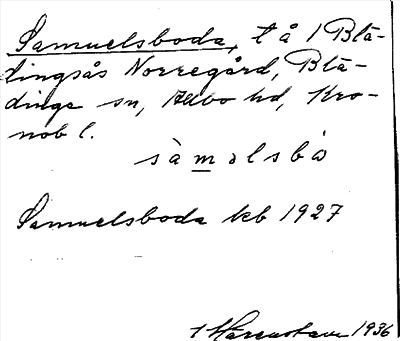 Samuelsboda, t å 1 Blä-
dingsås Norregård, Blä-
dinge sn, Allbo hd, Kro-
nob l.
sàmǝlsbȧ
Samuelsboda kb 1927
1936